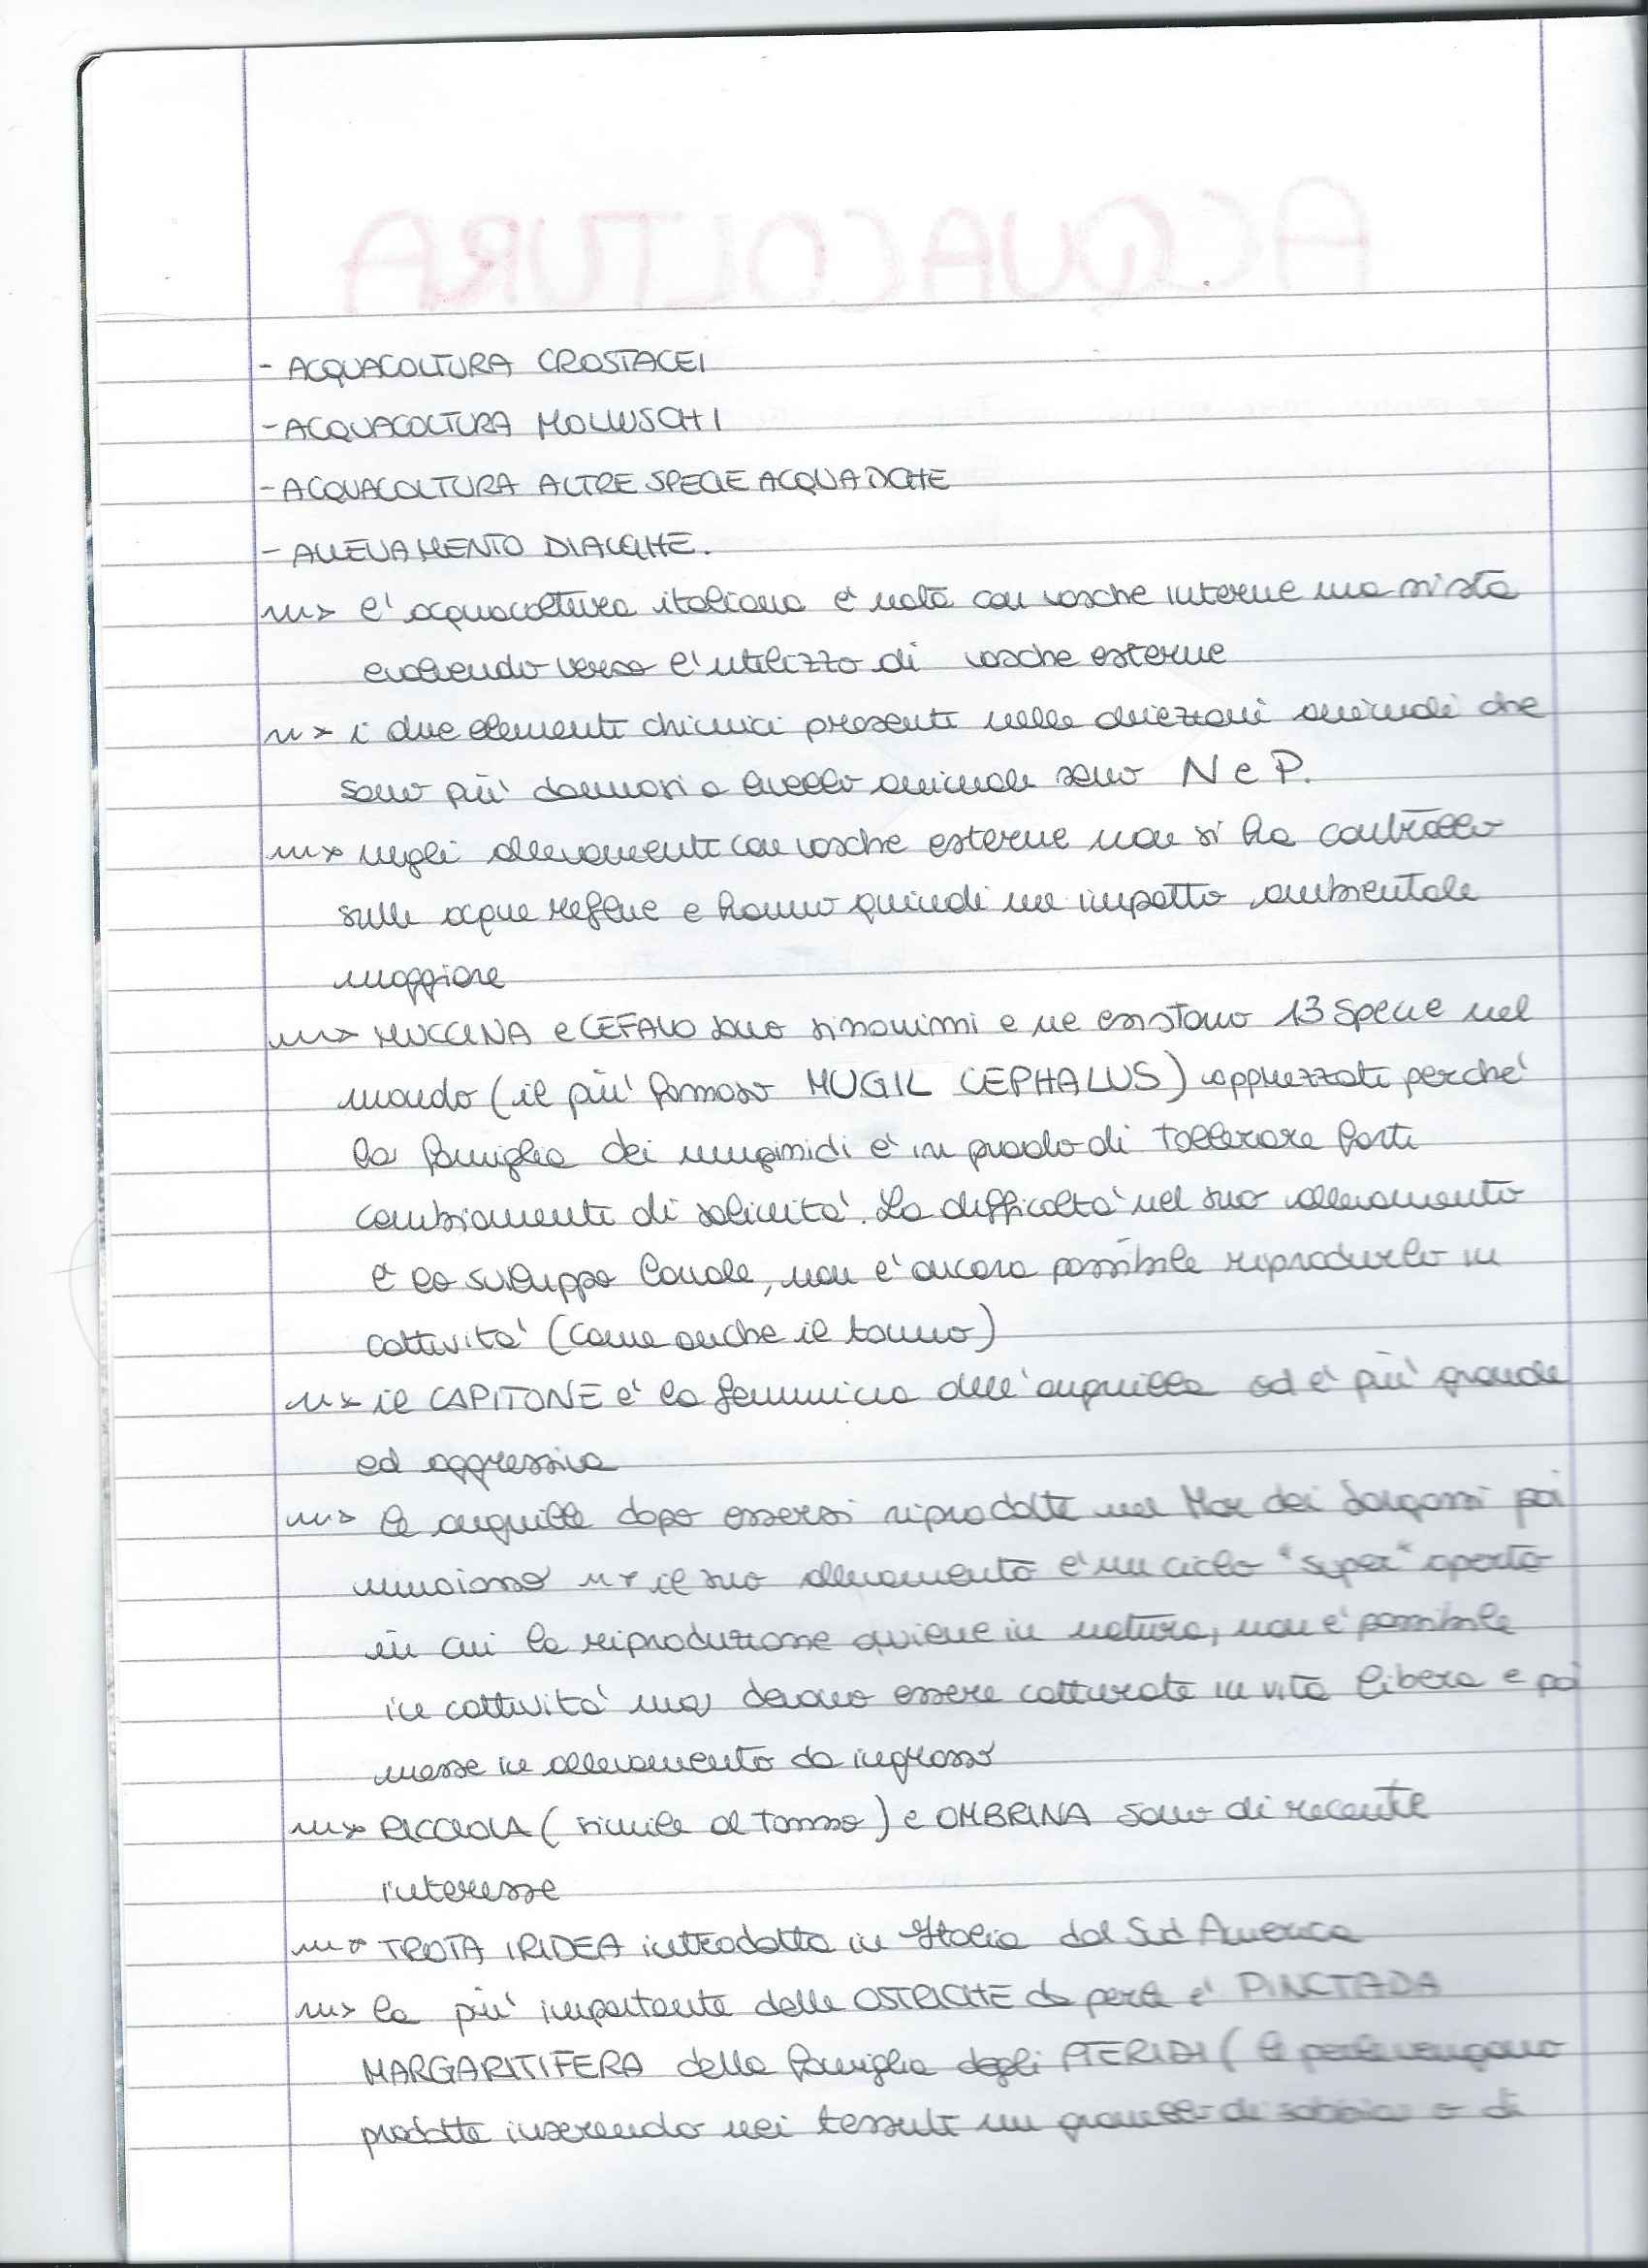 - ACQUACOLTURA CROSTACEI
- ACQUACOLTURA MOLLUSCHI
- ACQUACOLTURA ALTRE SPECIE ACQUATICHE
- ALLEVAMENTO DI ALGHE.
l'acquacoltura italiana è nata con vasche interne ma si sta
evolvendo verso l'utilizzo di vasche esterne
i due elementi chimici presenti nelle deiezioni animali che
sono più dannosi a livello animale sono N e P.
negli allevamenti con vasche esterne non si ha controllo
sulle acque reflue e hanno quindi un impatto ambientale
maggiore
MUGGINA e CEFALO sono sinonimi e ne esistono 13 specie nel
mondo (il più famoso MUGIL CEPHALUS) apprezzati perchè
la famiglia dei è in grado di tollerare forti
cambiamenti di salinità. La difficoltà nel suo allevamento
è lo sviluppo larvale, non è ancora possibile riprodurlo in
cattività (come anche il tonno)
il CAPITONE è la femmina dell'anguilla ed è più grande
ed aggressiva
le anguille dopo essersi riprodotte nel Mar dei Sargassi poi
muoiono il suo allevamento è un ciclo "super" aperto
in cui la riproduzione avviene in natura, non è possibile
in cattività ma devono essere catturate in vita libera e poi
messe in allevamento da ingrasso
RICCIOLA (simile al tonno) e OMBRINA sono di recente
interesse
TROTA IRIDEA introdotta in Italia dal Sud America
la più importante delle OSTRICHE da perle è PINCTADA
MARGARITIFERA della famiglia degli PTERIDI (le perle vengono
prodotte inserendo nei tessuti un granello di sabbia o di